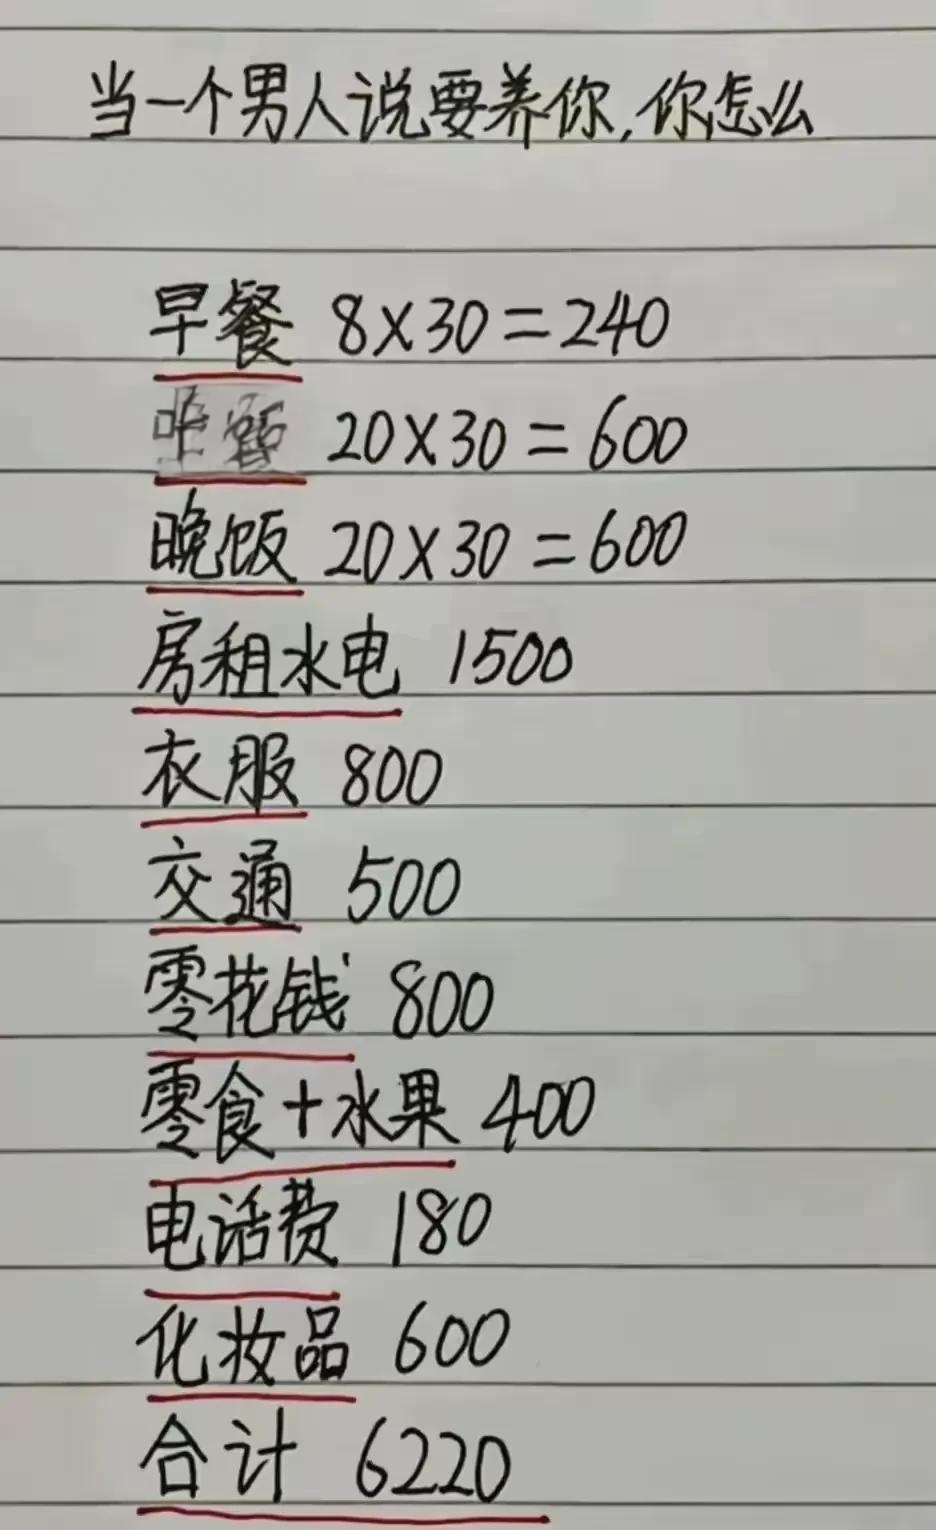 当一个男人说要养你,你怎么
早餐 8×30=240
20×30=600
晚饭 20×30=600
房租水电 1500
衣服 800
交通 500
零花钱 800
零食+水果 400
电话费 180
化妆品 600
合计 6220